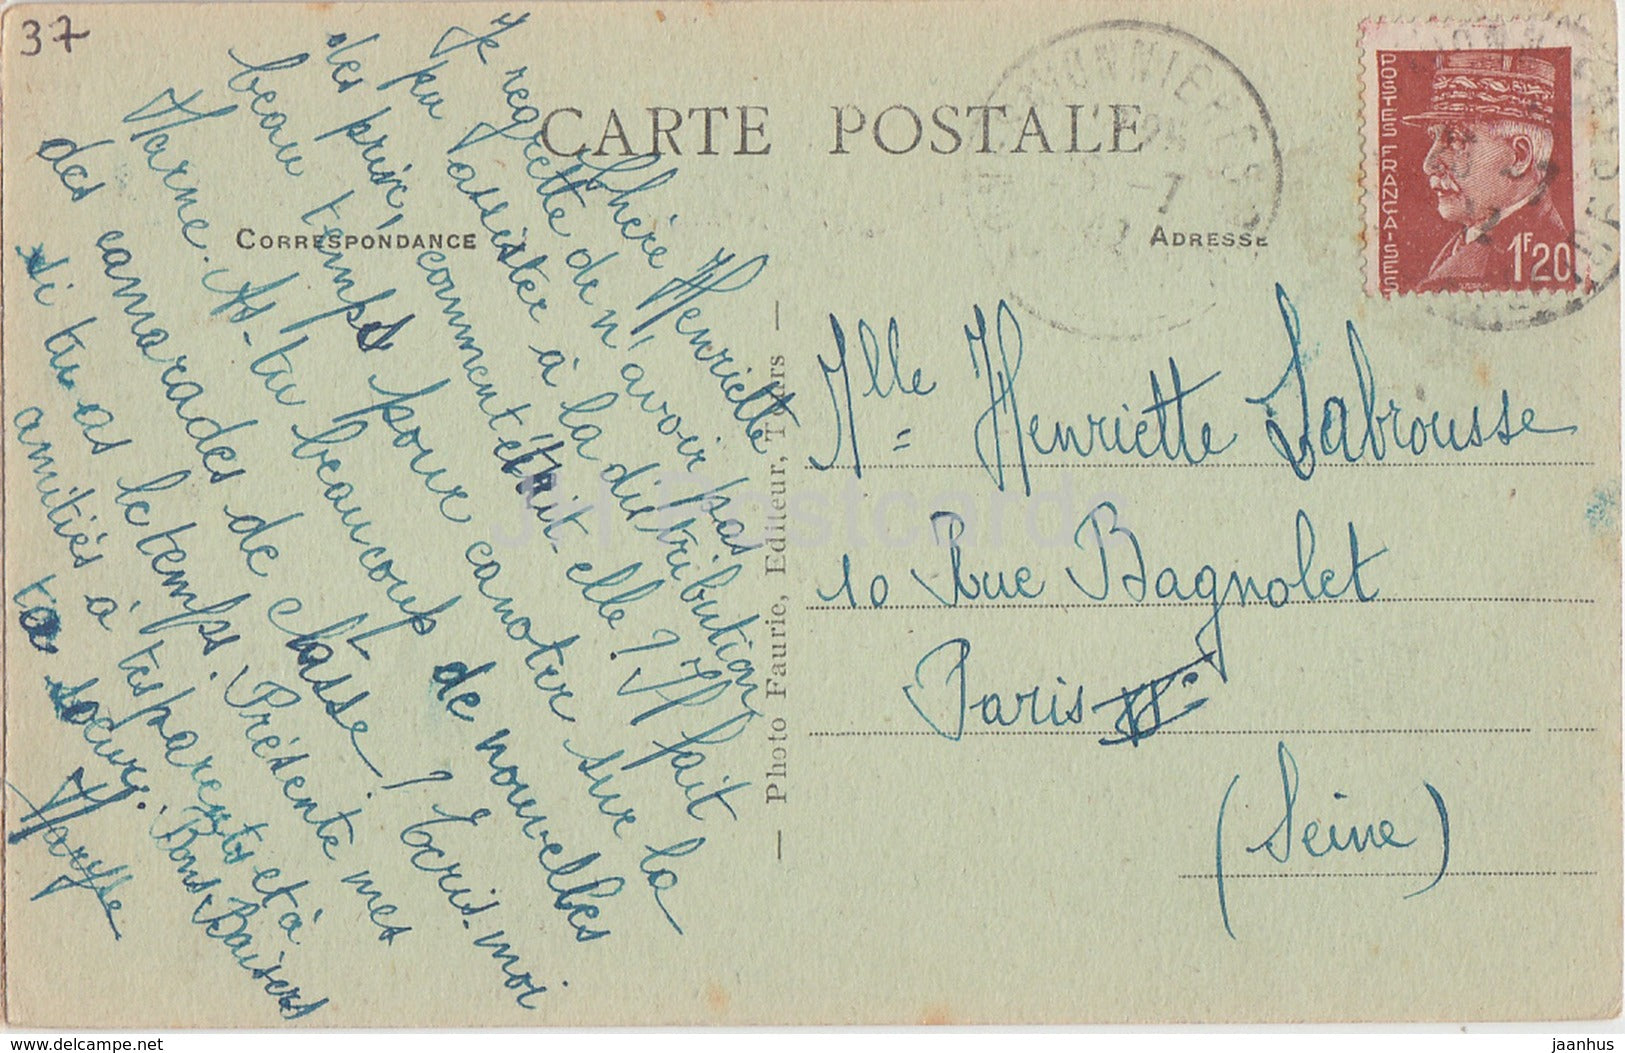 37
CARTE POSTALE
CORRESPONDANCE
ADRESSE
POSTES FRANÇAISES
1F20
Chère Henriette
Je regrette de n'avoir pas
pu assister à la distribution
des prix, comment était-elle ? Il fait
beau temps pour canoter sur la
Marne. As-tu beaucoup de nouvelles
des camarades de classe ? Ecris-moi
si tu as le temps. Présente mes
amitiés à tes parents et à
ta soeur. Bons Baisers
Maryse
Mlle Henriette Labrousse
10 Rue Bagnolet
Paris
(Seine)
— Photo Faurie, Editeur, Tours —
JH Postcards
delcampe.net
jaanhus